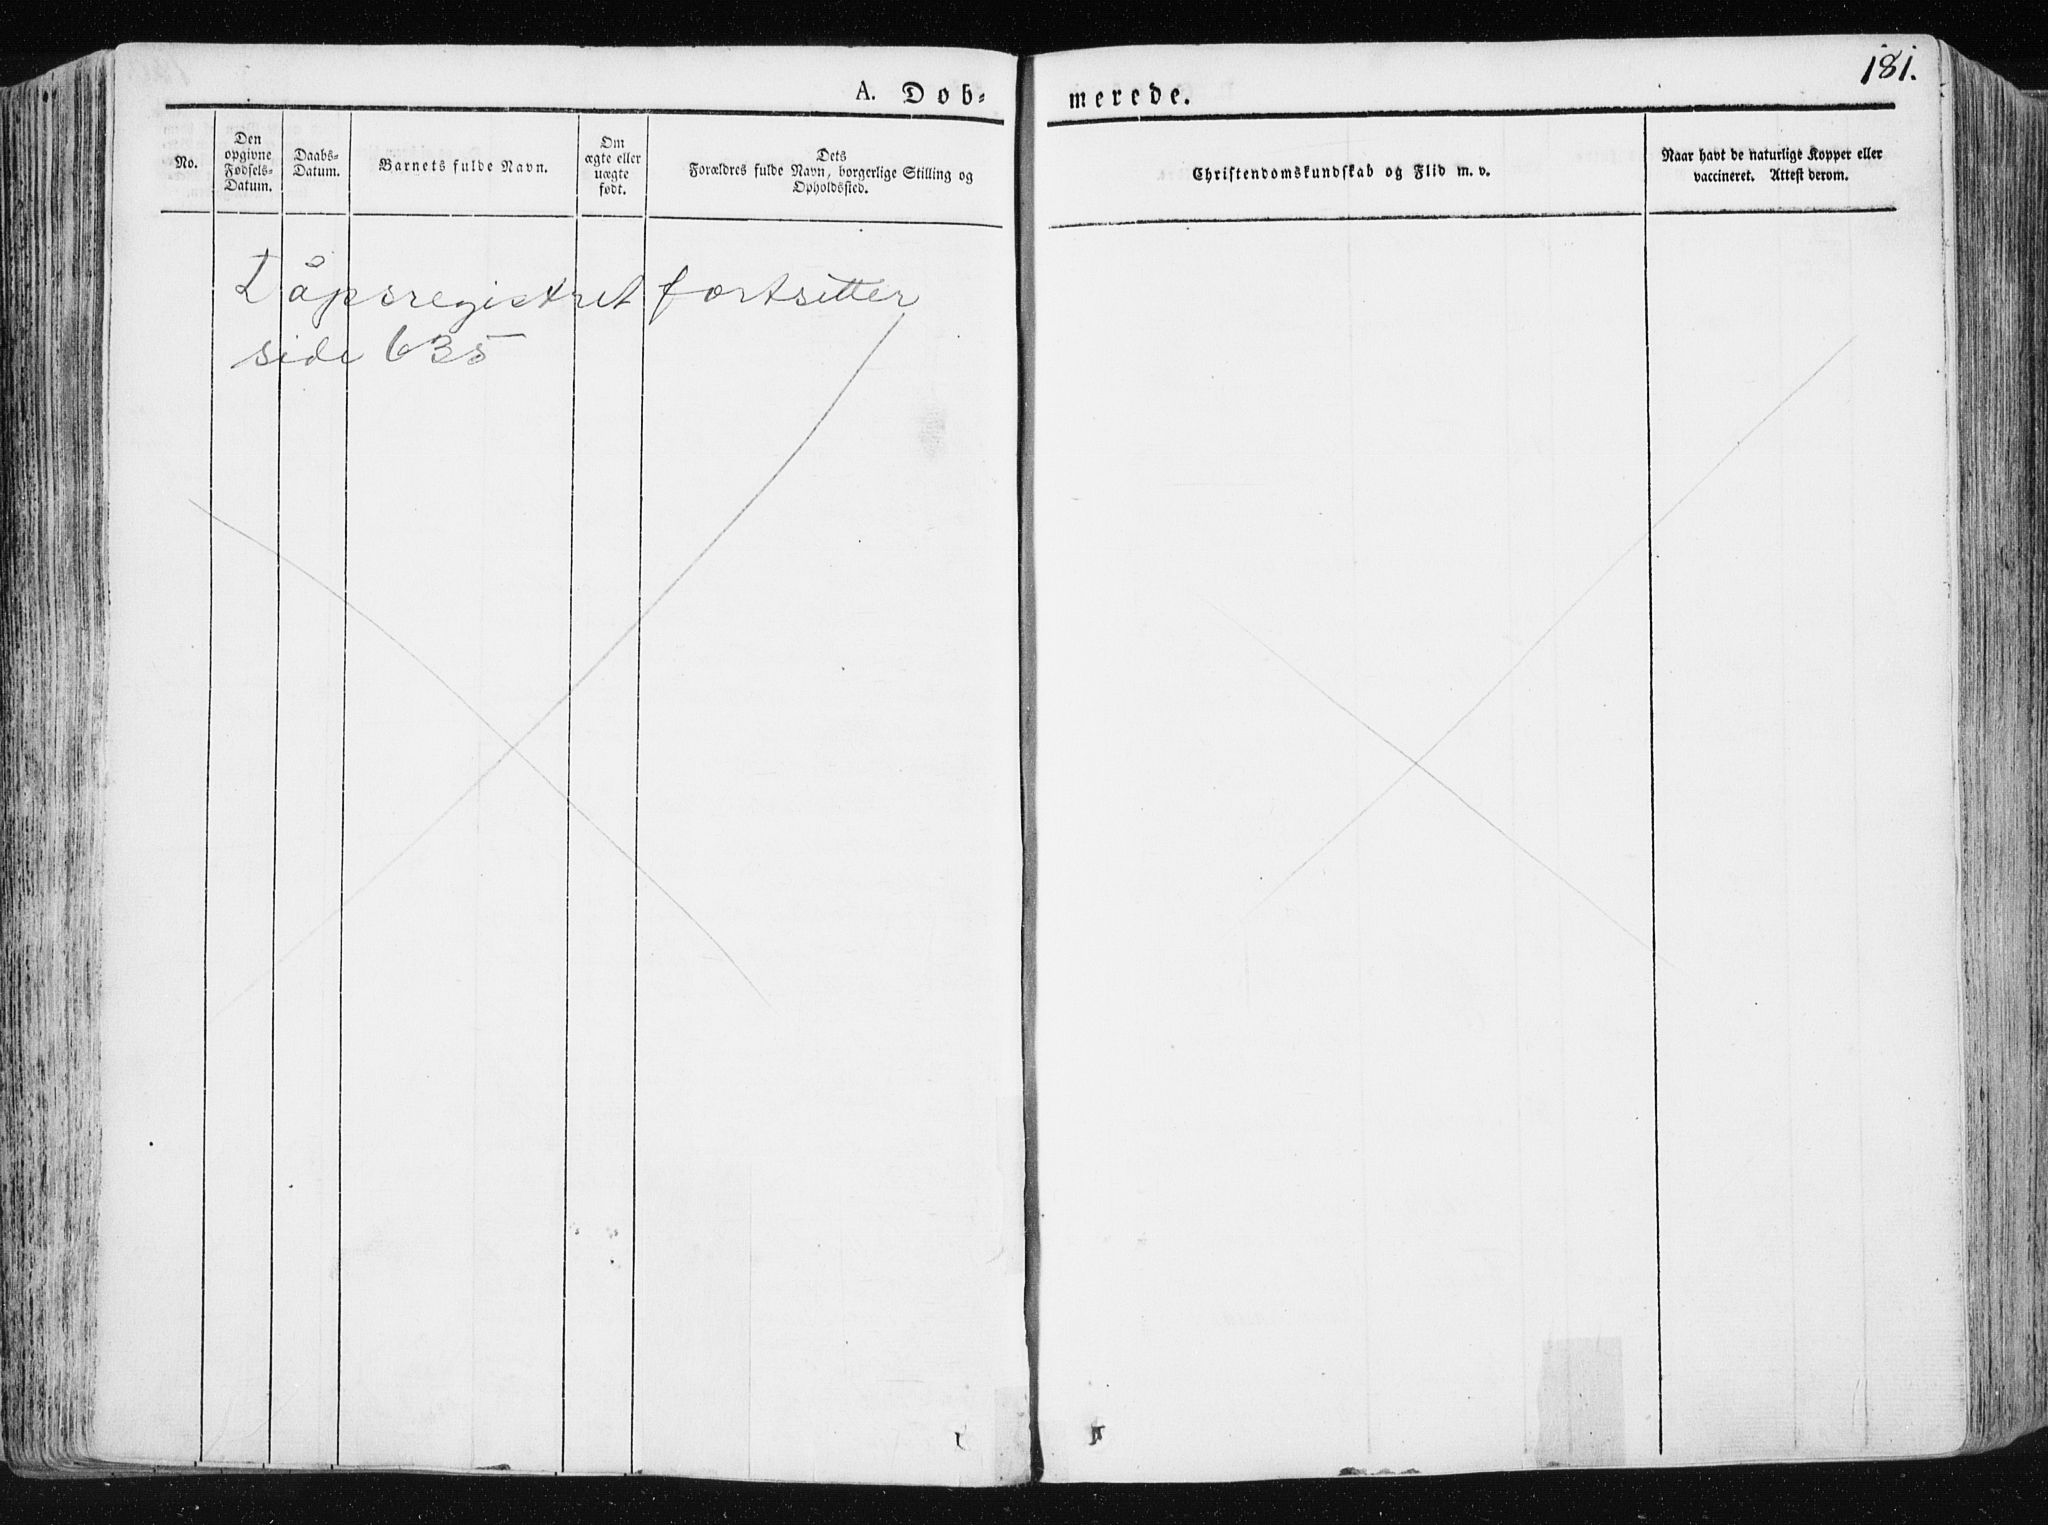 181.
A. Dob-
merede.
No.
Den
opgivne
Fødsels-
Datum.
Daabs-
Datum.
Barnets fulde Navn.
Om
ægte eller
uægte
født.
Dets
Forældres fulde Navn, borgerlige Stilling og
Opholdssted.
Christendomskundskab og Flid m. v.
Naar havt de naturlige Kopper eller
vaccineret. Attest derom.
Dåpsregistret fortsetter
side 635